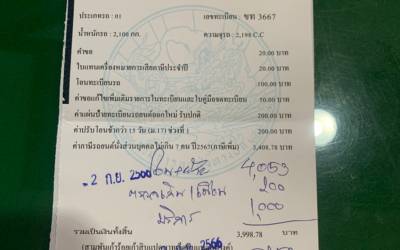 ประเภทรถ : 01 เลขทะเบียน : ขท 3667
น้ำหนักรถ : 2,100 กก. ความจุรถ : 2,198 C.C
คำขอ 20.00 บาท
ใบแทนเครื่องหมายการเสียภาษีประจำปี 20.00 บาท
โอนทะเบียนรถ 100.00 บาท
ค่าขอแก้ไขเพิ่มเติมรายการในทะเบียนและใบคู่มือจดทะเบียน 50.00 บาท
ค่าแผ่นป้ายทะเบียนรถยนต์ออกใหม่ รับปกติ 200.00 บาท
ค่าปรับโอนช้ากว่า 15 วัน (ม.17) ช่วงที่ 1 200.00 บาท
ค่าภาษีรถยนต์นั่งส่วนบุคคลไม่เกิน 7 คน ปี2567(ภาษีเพิ่ม) 3,408.78 บาท
4,053
- 2 ก.ย. 2566
200
1,000
บริการ
รวมเป็นเงินทั้งสิ้น 3,998.78 บาท
2566